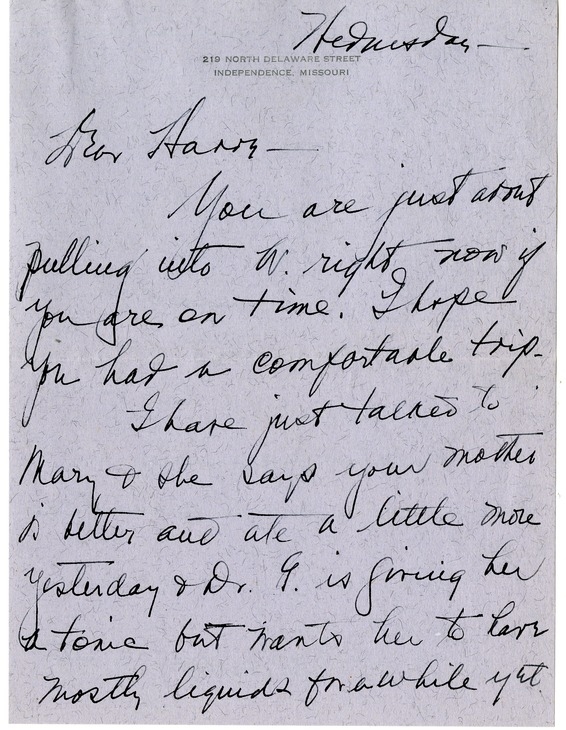 Wednesday—
219 NORTH DELAWARE STREET
INDEPENDENCE, MISSOURI
Dear Harry—
You are just about
pulling into W. right now if
you are on time. I hope
you had a comfortable trip.
I have just talked to
Mary & she says your mother
is better and ate a little more
yesterday & Dr. G. is giving her
a tonic but wants her to have
mostly liquids for awhile yet.